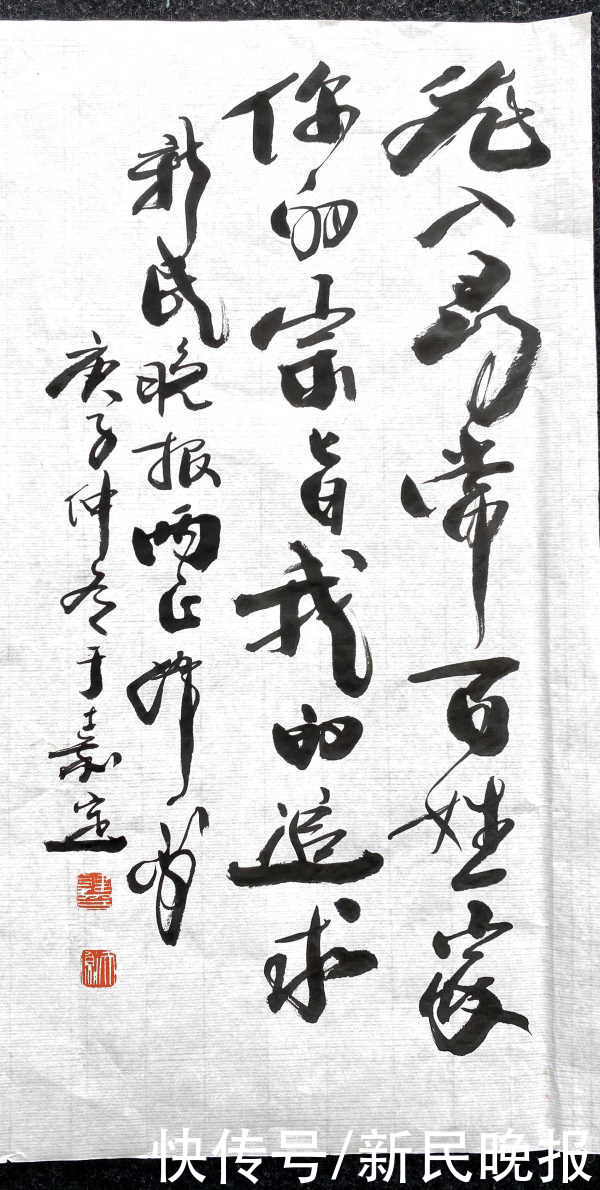 飞入寻常百姓家
你的宗旨我的追求
新民晚报
庚子仲于嘉定
快传号/新民晚报